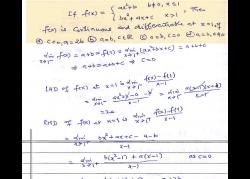 If f(x) = { ax²+b b≠0, x≤1
bx²+ax+c x>1 Then
f(x) is continuous and differentiable at x=1, if
a) c=0, a=2b b) a=b, c∈R c) a=b, c=0 d) a=b,
lim x→1⁻ f(x) = a+b = f(1) = lim x→1⁺ (bx²+ax+c) = a+b+c
⇒ a+b = a+b+c ⇒ c=0
LHD of f(x) at x=1 is lim x→1⁻ f(x)-f(1) / x-1
= lim x→1⁻ ax²+b-a-b / x-1 = lim x→1⁻ a(x-1)(x+1) / x-1
= 2a
RHD of f(x) at x=1 is lim x→1⁺ f(x)-f(1) / x-1
= lim x→1⁺ bx²+ax+c-a-b / x-1
= lim x→1⁺ b(x²-1)+a(x-1) / x-1 as c=0